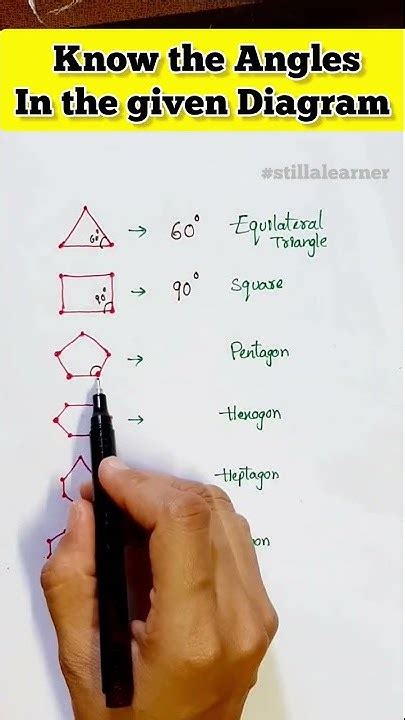 Know the Angles
In the given Diagram
#stillalearner
60° → 60° Equilateral
Triangle
90° → 90° Square
→ Pentagon
→ Hexogon
Heptagon
on